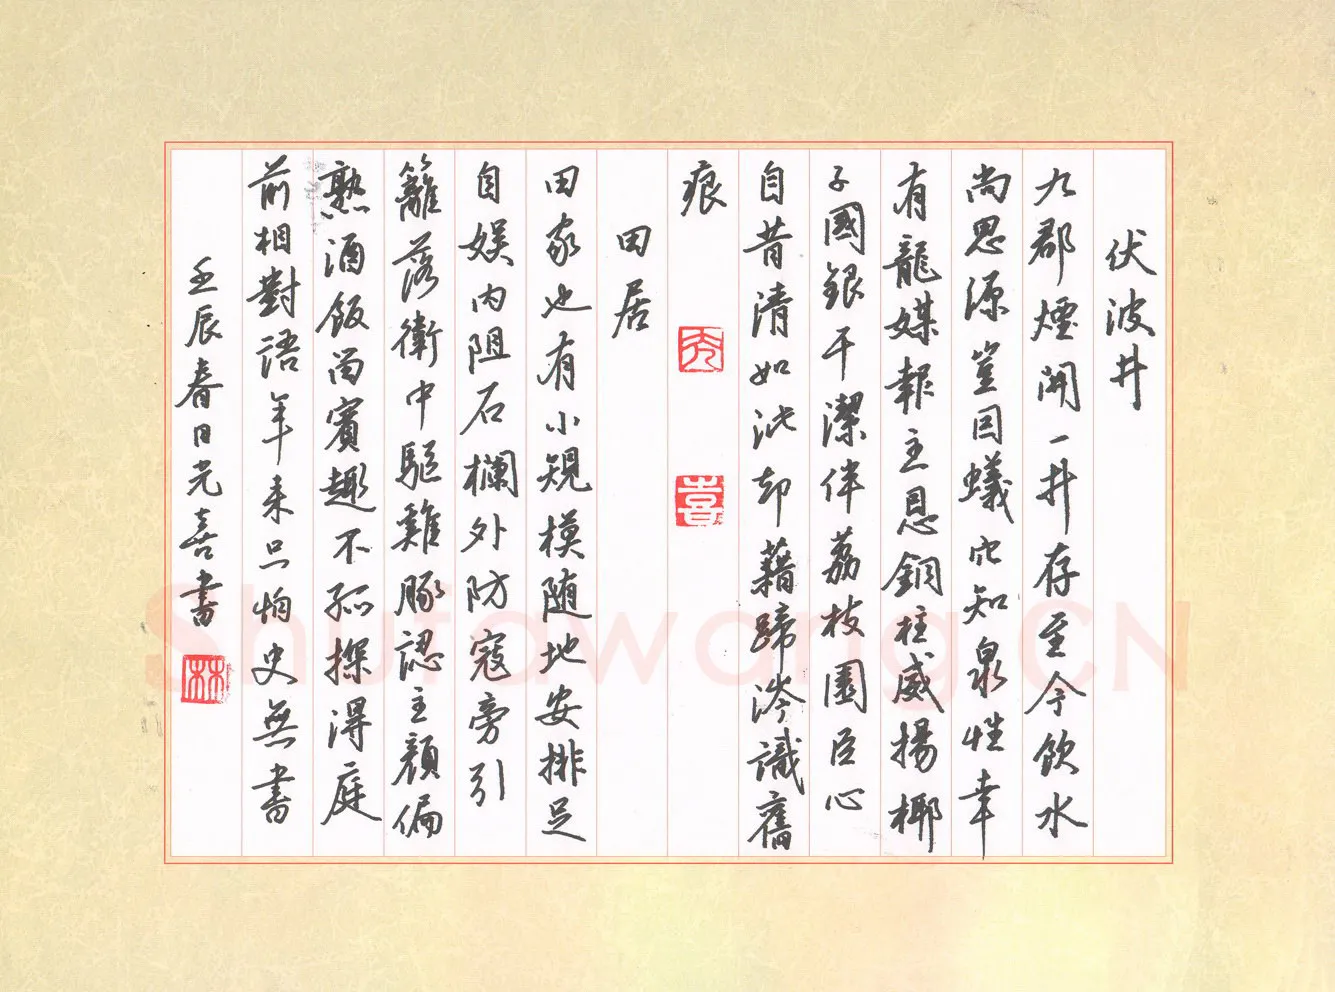 伏波井
九郡煙開一井存至今飲水
尚思源豈因蟻穴知泉性幸
有龍媒報主恩銅柱威揚椰
子國銀干潔伴荔枝園臣心
自昔清如此却藉蹄涔識舊
痕
田居
田家也有小規模随地安排足
自娱内阻石欄外防寇旁引
籬落衛中驅雞豚認主顏偏
熟酒飯留賓趣不孤探得庭
前相對語年来只怕史無書
壬辰春日光喜書
林
喜
Shufawang.CN